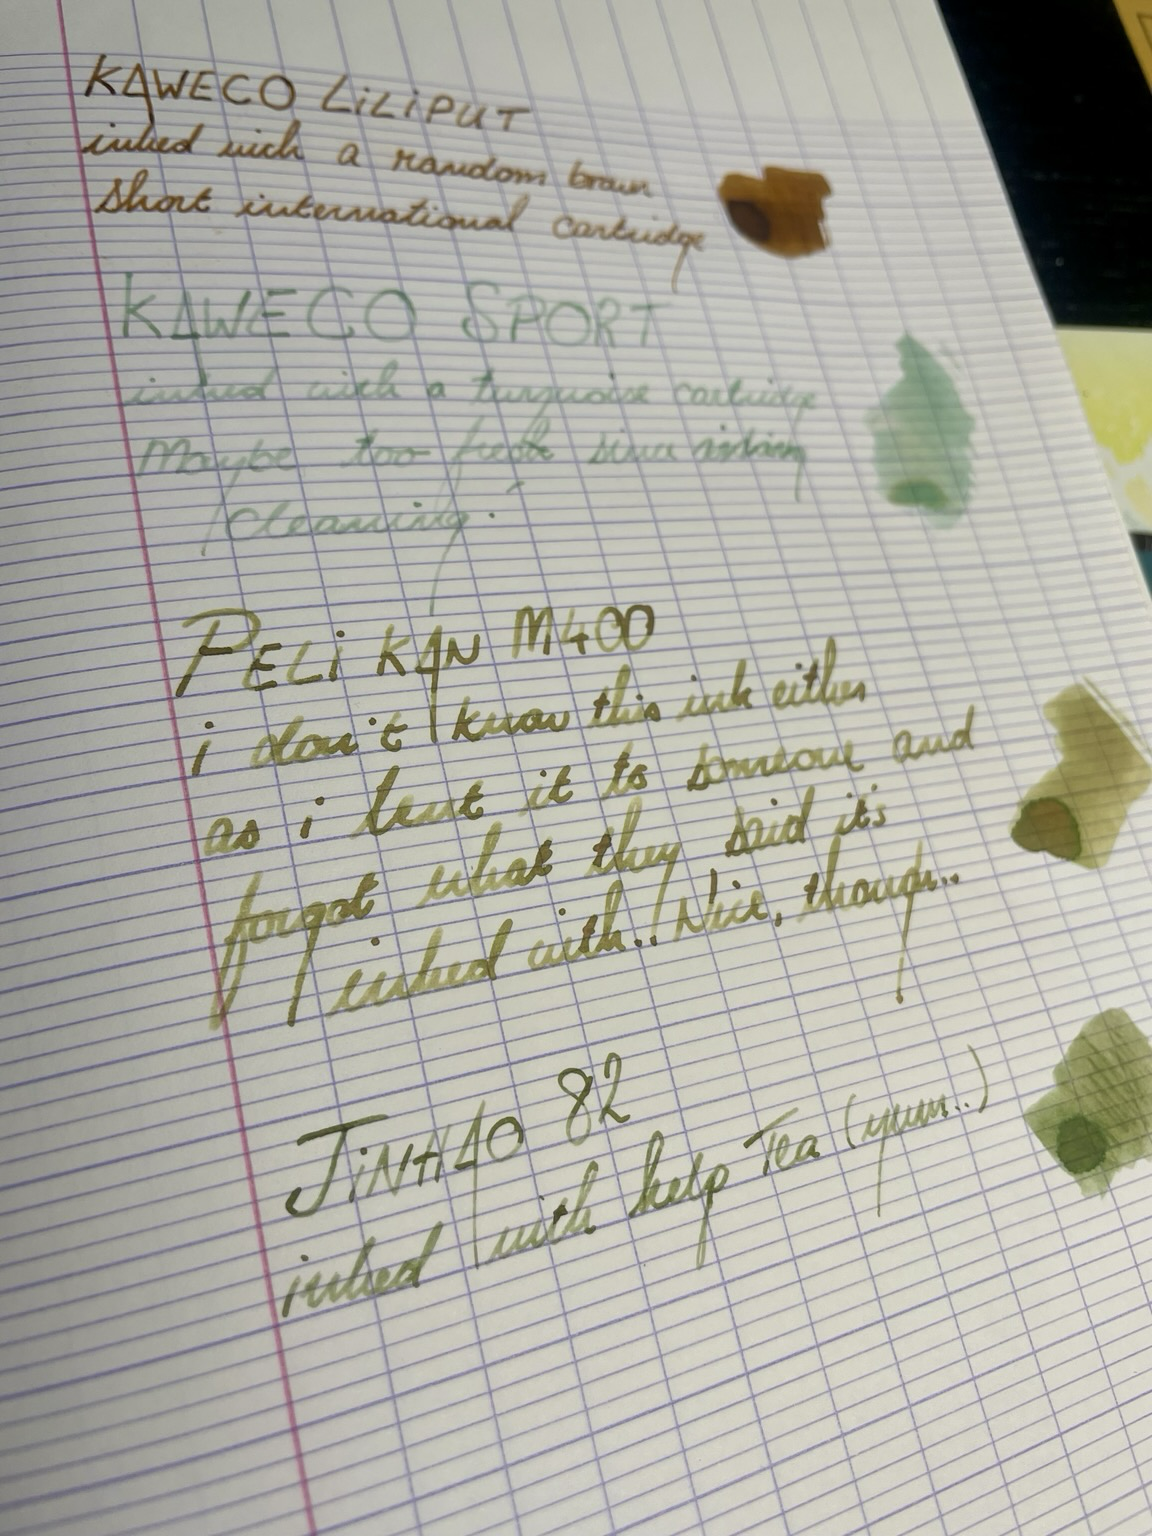 KAWECO LiLiPUT
inked with a random brown
short international cartridge
KAWECO SPORT
inked with a turquoise cartridge
Maybe too fresh since
cleaning.
PELiKAN M400
i don't know this ink either
as i lent it to someone and
forgot what they said it's
inked with.. Nice, though..
JiNHAO 82
inked with help Tea (yum..)